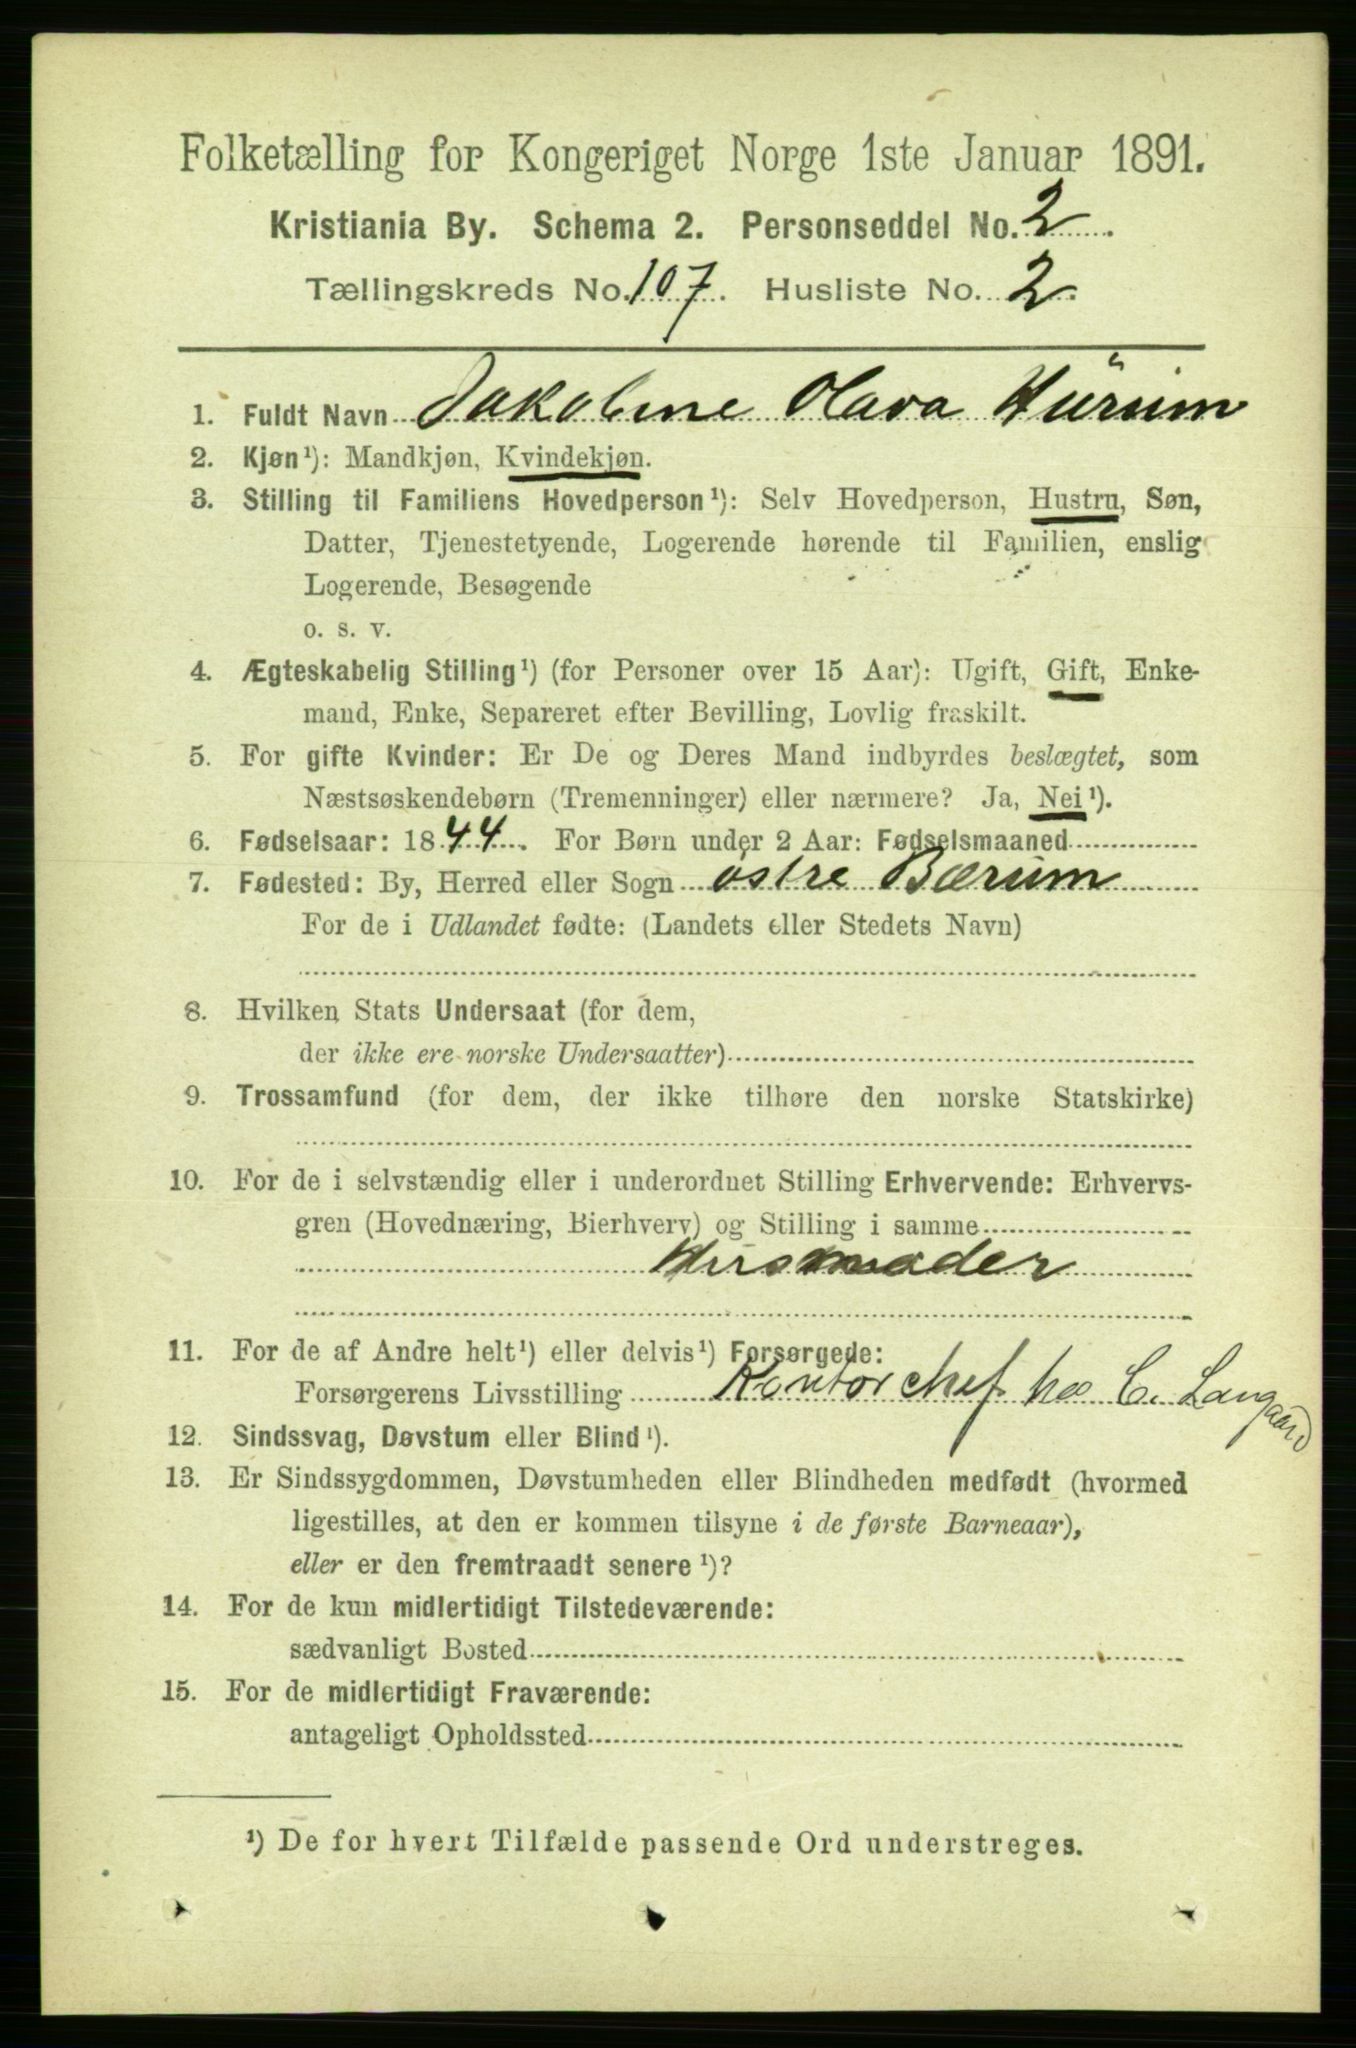 Folketælling for Kongeriget Norge 1ste Januar 1891.
Kristiania By. Schema 2. Personseddel No. 2
Tællingskreds No. 107. Husliste No. 2.
1. Fuldt Navn Jakobine Olava Hürum
2. Kjøn¹): Mandkjøn, Kvindekjøn.
3. Stilling til Familiens Hovedperson¹): Selv Hovedperson, Hustru, Søn,
Datter, Tjenestetyende, Logerende hørende til Familien, enslig
Logerende, Besøgende
o. s. v.
4. Ægteskabelig Stilling¹) (for Personer over 15 Aar): Ugift, Gift, Enke-
mand, Enke, Separeret efter Bevilling, Lovlig fraskilt.
5. For gifte Kvinder: Er De og Deres Mand indbyrdes beslægtet, som
Næstsøskendebørn (Tremenninger) eller nærmere? Ja, Nei¹).
6. Fødselsaar: 1844. For Børn under 2 Aar: Fødselsmaaned
7. Fødested: By, Herred eller Sogn østre Bærum
For de i Udlandet fødte: (Landets eller Stedets Navn)
8. Hvilken Stats Undersaat (for dem,
der ikke ere norske Undersaatter)
9. Trossamfund (for dem, der ikke tilhøre den norske Statskirke)
10. For de i selvstændig eller i underordnet Stilling Erhvervende: Erhvervs-
gren (Hovednæring, Bierhverv) og Stilling i samme
Husmoder
11. For de af Andre helt¹) eller delvis¹) Forsørgede:
Forsørgerens Livsstilling Kontorchef hos C. Langaard
12. Sindssvag, Døvstum eller Blind¹).
13. Er Sindssygdommen, Døvstumheden eller Blindheden medfødt (hvormed
ligestilles, at den er kommen tilsyne i de første Barneaar),
eller er den fremtraadt senere¹)?
14. For de kun midlertidigt Tilstedeværende:
sædvanligt Bosted
15. For de midlertidigt Fraværende:
antageligt Opholdssted
¹) De for hvert Tilfælde passende Ord understreges.